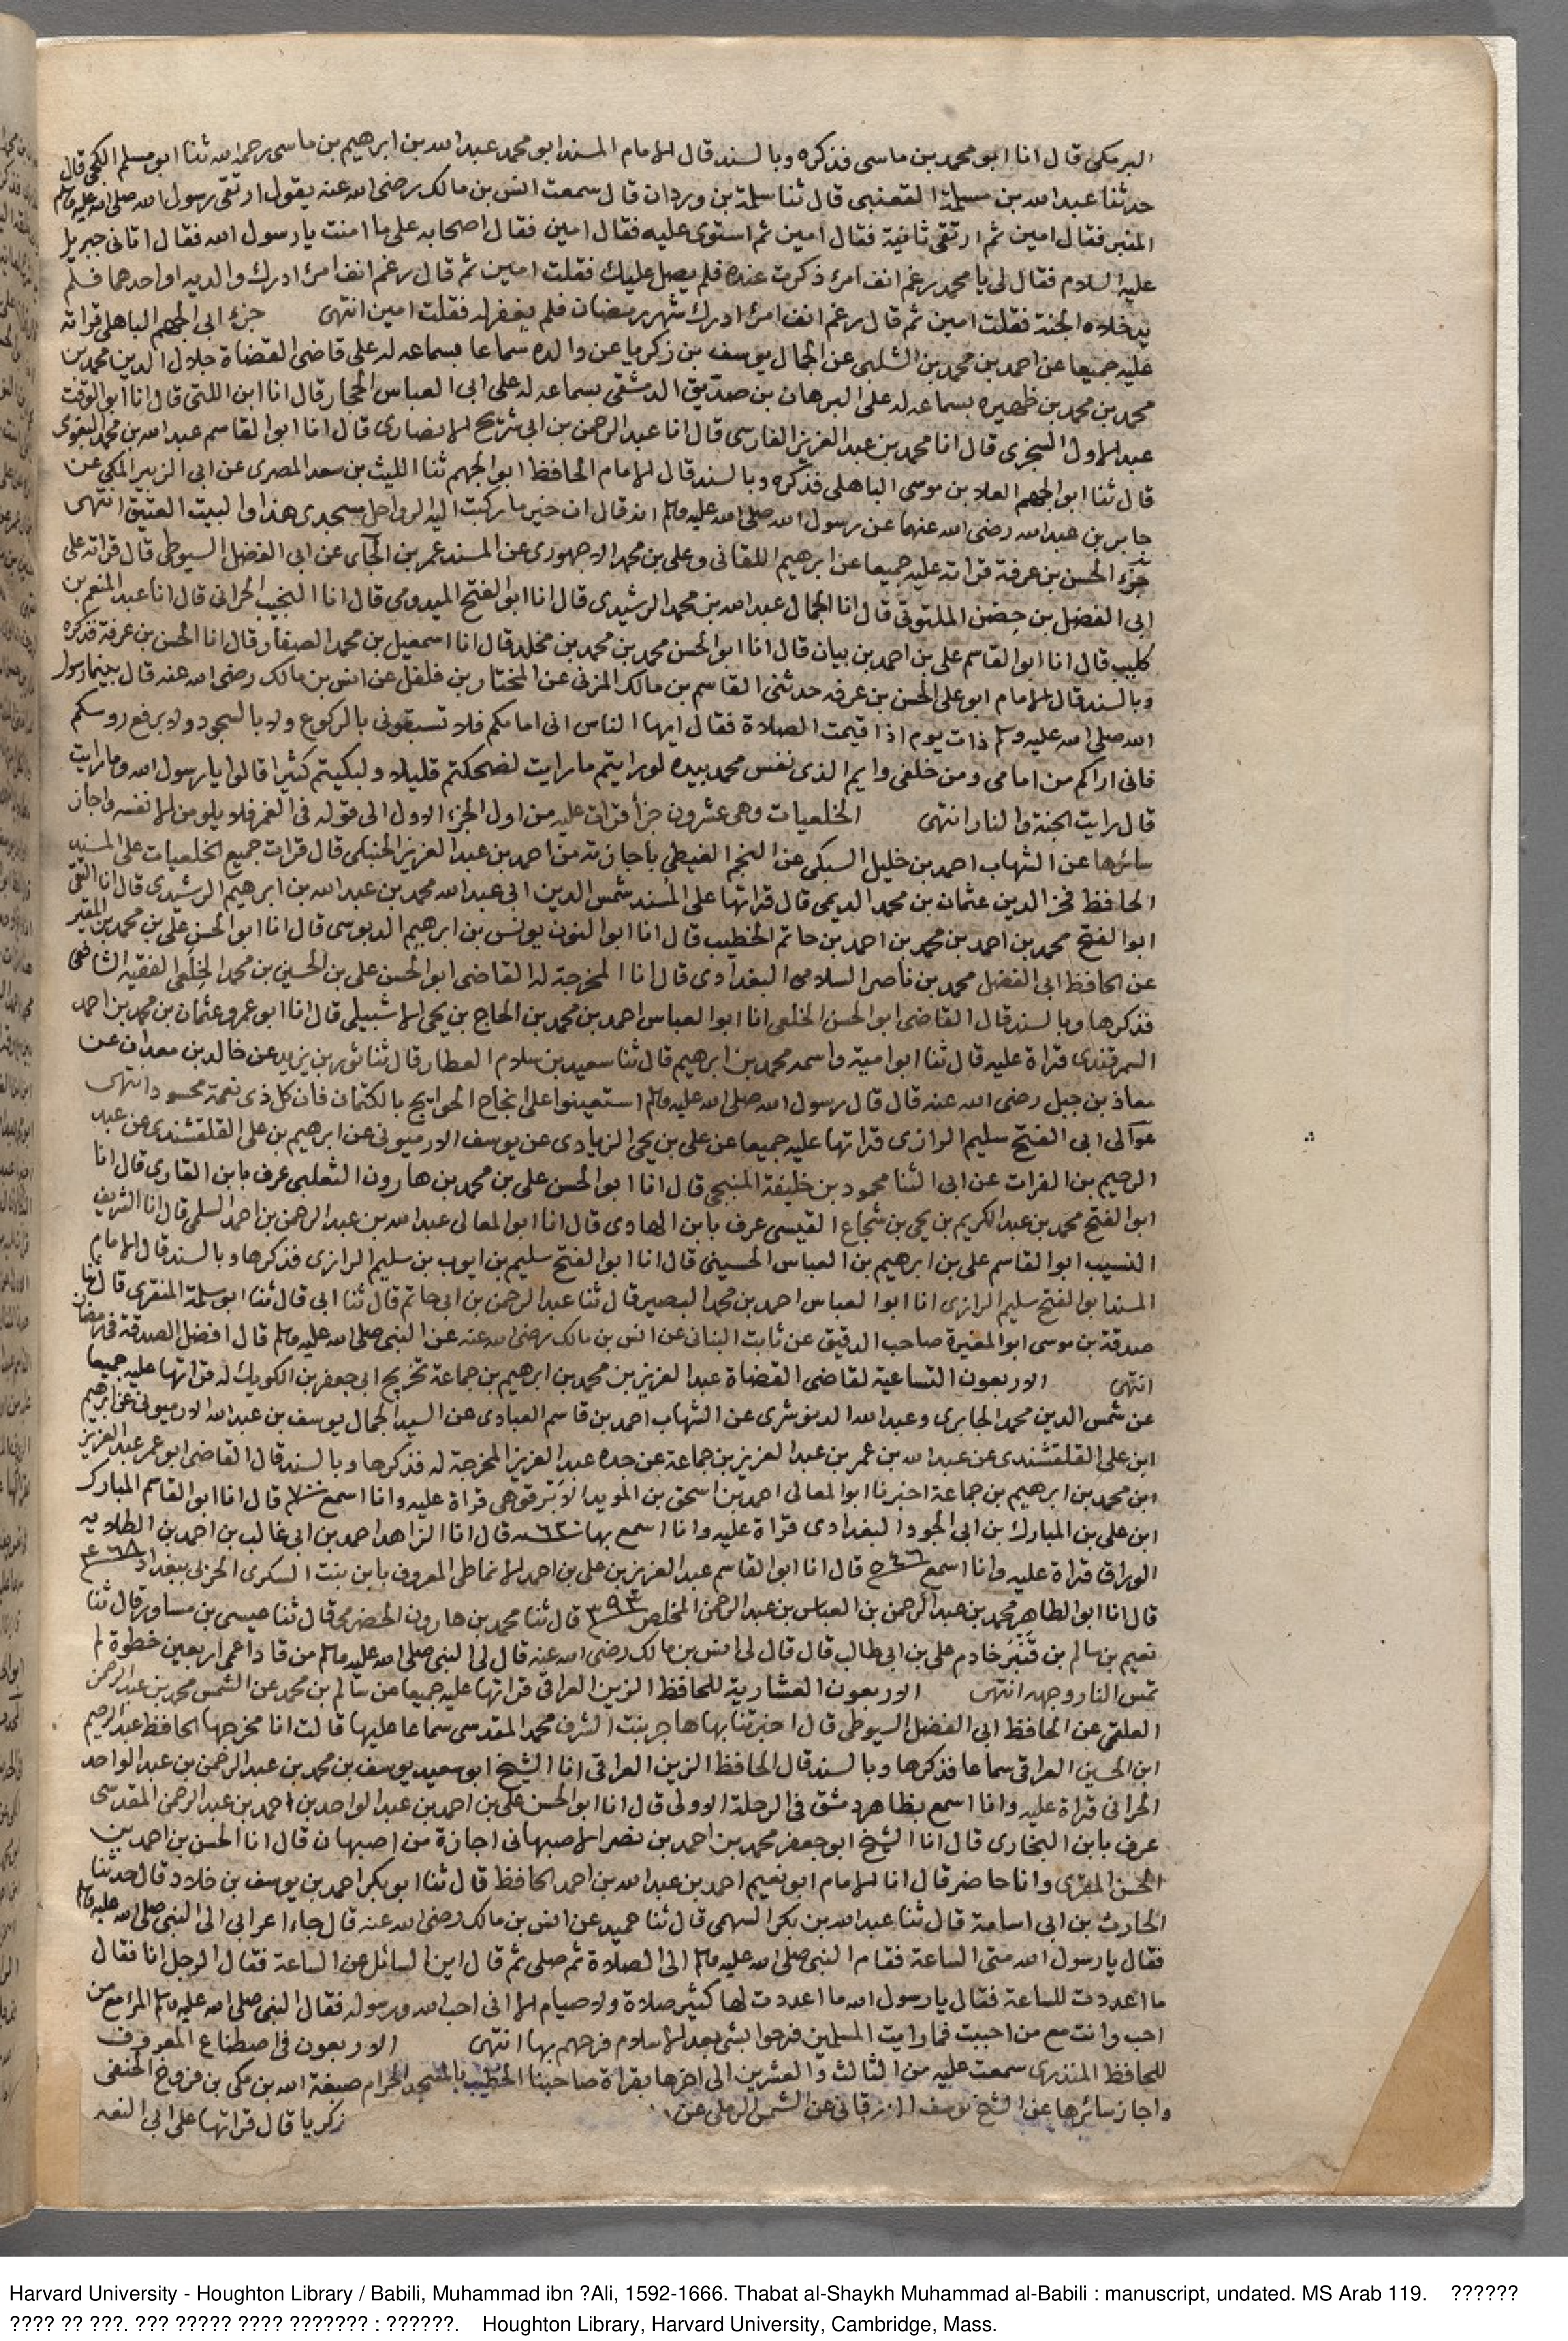 البرمكي قال انا ابو محمد بن ماسي فذكره وبالسند قال الامام المسند ابو محمد عبد الله بن ابرهيم بن ماسي رحمه الله ثنا ابو مسلم الكجي قال
حدثنا عبد الله بن مسلمة القعنبي قال ثنا سلمة بن وردان قال سمعت انس بن مالك رضي الله عنه يقول ارتقى رسول الله صلى الله عليه وسلم
المنبر فقال امين ثم ارتقى ثانية فقال امين ثم استوى عليه فقال امين فقال اصحابه على ما امنت يا رسول الله فقال اتاني جبريل
عليه السلام فقال لي يا محمد رغم انف امرئ ذكرت عنده فلم يصل عليك فقلت امين ثم قال رغم انف امرئ ادرك والديه او احدهما فلم
يدخلاه الجنة فقلت امين ثم قال رغم انف امرئ ادرك شهر رمضان فلم يغفر له فقلت امين انتهى جزء ابي الجهم الباهلي قراته
عليه جميعا عن احمد بن محمد بن الشلبي عن الجمال يوسف بن زكريا عن والده سماعا بسماعه له على قاضي القضاة جلال الدين محمد بن
محمد بن محمد بن ظهيره بسماعه له على البرهان بن صديق الدمشقي بسماعه له على ابي العباس الحجار قال انا ابن اللتي قال انا ابو الوقت
عبد الاول السجزي قال انا محمد بن عبد العزيز الفارسي قال انا عبد الرحمن بن ابي شريح الانصاري قال انا ابو القاسم عبد الله بن محمد البغوي
قال ثنا ابو الجهم العلا بن موسى الباهلي فذكره وبالسند قال الامام الحافظ ابو الجهم ثنا الليث بن سعد المصري عن ابي الزبير المكي عن
جابر بن عبد الله رضي الله عنهما عن رسول الله صلى الله عليه وسلم انه قال ان خير ما ركبت اليه الرواحل مسجدي هذا والبيت العتيق انتهى
جزء الحسن بن عرفة قراته عليه جميعا عن ابرهيم اللقاني وعلي بن محمد الاجهوري عن المسند عمر بن الجآي عن ابي الفضل السيوطي قال قراته على
ابي الفضل بن حصن الملتوتي قال انا الجمال عبد الله بن محمد الرشيدي قال انا ابو الفتح الميدومي قال انا النجيب الحراني قال انا عبد المنعم بن
كليب قال انا ابو القاسم علي بن احمد بن بيان قال انا ابو الحسن محمد بن محمد بن مخلد قال انا اسمعيل بن محمد الصفار قال انا الحسن بن عرفة فذكره
وبالسند قال الامام ابو علي الحسن بن عرفه حدثني القاسم بن مالك المزني عن المختار بن فلفل عن انس بن مالك رضي الله عنه قال بينما رسول
الله صلى الله عليه وسلم ذات يوم اذا قيمت الصلاة فقال ايها الناس اني امامكم فلا تسبقوني بالركوع ولا بالسجود ولا برفع روسكم
فاني اراكم من امامي ومن خلفي وايم الذي نفس محمد بيده لو رايتم ما رايت لضحكتم قليلا ولبكيتم كثيرا قالوا يا رسول الله وما رايت
قال رايت الجنة والنار انتهى الخلعيات وهي عشرون جزأ قرات عليه من اول الجزء الاول الى قوله في القمر فلا يلومن الا نفسه واجاز
سائرها عن الشهاب احمد بن خليل السبكي عن النجم الغيطي باجازته من احمد بن عبد العزيز الحنبلي قال قرات جميع الخلعيات على المسند
الحافظ فخر الدين عثمان بن محمد الديمي قال قراتها على المسند شمس الدين ابي عبد الله محمد بن عبد الله بن ابرهيم الرشيدي قال انا التقي
ابو الفتح محمد بن احمد بن محمد بن احمد بن حاتم الخطيب قال انا ابو النون يونس بن ابرهيم الدبوسي قال انا ابو الحسن علي بن محمد بن المقير
عن الحافظ ابي الفضل محمد بن ناصر السلامي البغدادي قال انا المخرجة له القاضي ابو الحسن علي بن الحسين بن محمد الخلعي الفقيه الشافعي
فذكرها وبالسند قال القاضي ابو الحسن الخلعي انا ابو العباس احمد بن محمد بن الحاج بن يحي الاشبيلي قال انا ابو عمرو عثمان بن محمد بن احمد
السمرقندي قراة عليه قال ثنا ابو امية واسمه محمد بن ابرهيم قال ثنا سعيد بن سلام العطار قال ثنا ثور بن يزيد عن خالد بن معدان عن
معاذ بن جبل رضي الله عنه قال قال رسول الله صلى الله عليه وسلم استعينوا على انجاح الحوايج بالكتمان فان كل ذي نعمة محسود انتهى
عوالي ابي الفتح سليم الرازي قراتها عليه جميعا عن علي بن يحي الزيادي عن يوسف الارميوني عن ابرهيم بن علي القلقشندي عن عبد
الرحيم بن الفرات عن ابي الثنا محمود بن خليفة المنبجي قال انا ابو الحسن علي بن محمد بن هارون الثعلبي عرف بابن القاري قال انا
ابو الفتح محمد بن عبد الكريم بن يحي بن شجاع القيسي عرف بابن الهادي قال انا ابو المعالي عبد الله بن عبد الرحمن بن احمد السلمي قال انا الشريف
النسيب ابو القاسم علي بن ابرهيم بن العباس الحسيني قال انا ابو الفتح سليم بن ايوب بن سليم الرازي فذكرها وبالسند قال الامام
المسند ابو الفتح سليم الرازي انا ابو العباس احمد بن محمد البصير قال ثنا عبد الرحمن بن ابي حاتم قال ثنا ابي قال ثنا ابو سلمة المنقري قال ثنا
صدقة بن موسى ابو المغيرة صاحب الدقيق عن ثابت البناني عن انس بن مالك رضي الله عنه عن النبي صلى الله عليه وسلم قال افضل الصدقة في رمضان
انتهى الاربعون التساعية لقاضي القضاة عبد العزيز بن محمد بن ابرهيم بن جماعة تخريج ابي جعفر بن الكويك له قراتها عليه جميعا
عن شمس الدين محمد الجابري وعبد الله الدنوشري عن الشهاب احمد بن قاسم العبادي عن السيد الجمال يوسف بن عبد الله الارميوني عن ابرهيم
ابن علي القلقشندي عن عبد الله بن عمر بن عبد العزيز بن جماعة عن جده عبد العزيز المخرجة له فذكرها وبالسند قال القاضي ابو عمر عبد العزيز
ابن محمد بن ابرهيم بن جماعة اخبرنا ابو المعالي احمد بن اسحق بن المويد الابرقوهي قراة عليه وانا اسمع قال انا ابو القاسم المبارك
ابن علي بن المبارك بن ابي الجود البغدادي قراة عليه وانا اسمع بها قال انا الزاهد احمد بن ابي غالب بن احمد بن الطلايه
الوراق قراة عليه وانا اسمع قال انا ابو القاسم عبد العزيز بن علي بن احمد الانماطي المعروف بابن بنت السكري الحربي ببغداد
قال انا ابو الطاهر محمد بن عبد الرحمن بن العباس بن عبد الرحمن المخلص ٣٩٣ قال ثنا محمد بن هارون الحضرمي قال ثنا عيسى بن مساور قال ثنا
نعيم بن سالم بن قنبر خادم علي بن ابي طالب قال قال لي انس بن مالك رضي الله عنه قال لي النبي صلى الله عليه وسلم من قاد اعمى اربعين خطوة لم
تمس النار وجهه انتهى الاربعون العشارية للحافظ الزين العراقي قراتها عليه جميعا عن سالم بن محمد عن الشمس محمد بن عبد الرحمن
العلقمي عن الحافظ ابي الفضل السيوطي قال اخبرتنا بها هاجر بنت الشرف محمد المقدسي سماعا عليها قالت انا مخرجها الحافظ عبد الرحيم
ابن الحسين العراقي سماعا فذكرها وبالسند قال الحافظ الزين العراقي انا الشيخ ابو سعيد يوسف بن محمد بن عبد الرحمن بن عبد الواحد
الحراني قراة عليه وانا اسمع بظاهر دمشق في الرحلة الاولى قال انا ابو الحسن علي بن احمد بن عبد الواحد بن احمد بن عبد الرحمن المقدسي
عرف بابن البخاري قال انا الشيخ ابو جعفر محمد بن احمد بن نصر الاصبهاني اجازة من اصبهان قال انا الحسن بن احمد بن
الحسن المقري وانا حاضر قال انا الامام ابو نعيم احمد بن عبد الله بن احمد الحافظ قال ثنا ابو بكر احمد بن يوسف بن خلاد قال حدثنا
الحارث بن ابي اسامة قال ثنا عبد الله بن بكر السهمي قال ثنا حميد عن انس بن مالك رضي الله عنه قال جاء اعرابي الى النبي صلى الله عليه وسلم
فقال يا رسول الله متى الساعة فقام النبي صلى الله عليه وسلم الى الصلاة ثم صلى ثم قال اين السائل عن الساعة فقال الرجل انا فقال
ما اعددت للساعة فقال يا رسول الله ما اعددت لها كثير صلاة ولا صيام الا اني احب الله ورسوله فقال النبي صلى الله عليه وسلم المرء مع من
احب وانت مع من احببت فما رايت المسلمين فرحوا بشئ بعد الاسلام فرحهم بها انتهى الاربعون في اصطناع المعروف
للحافظ المنذري سمعت عليه من الثالث والعشرين الى اخرها بقراة صاحبنا الخطيب بالمسجد الحرام صبغة الله بن مكي بن فروخ الحنفي
واجاز سائرها عن الشيخ يوسف الزرقاني عن الشمس الرملي عن زكريا قال قراتها على ابي النعيم
Harvard University - Houghton Library / Babili, Muhammad ibn ?Ali, 1592-1666. Thabat al-Shaykh Muhammad al-Babili : manuscript, undated. MS Arab 119. ??????
???? ?? ???. ??? ????? ???? ??????? : ??????. Houghton Library, Harvard University, Cambridge, Mass.